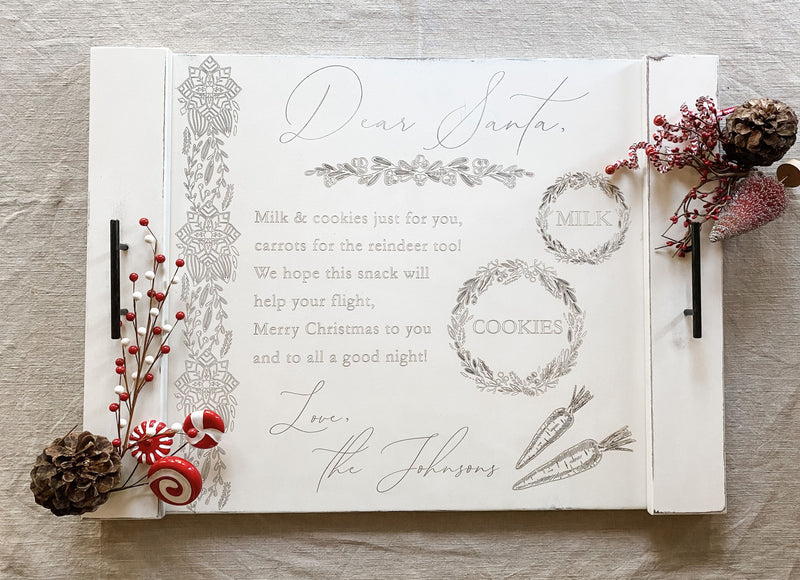 Dear Santa,
Milk & cookies just for you,
carrots for the reindeer too!
We hope this snack will
help your flight,
Merry Christmas to you
and to all a good night!
Love,
the Johnsons
MILK
COOKIES